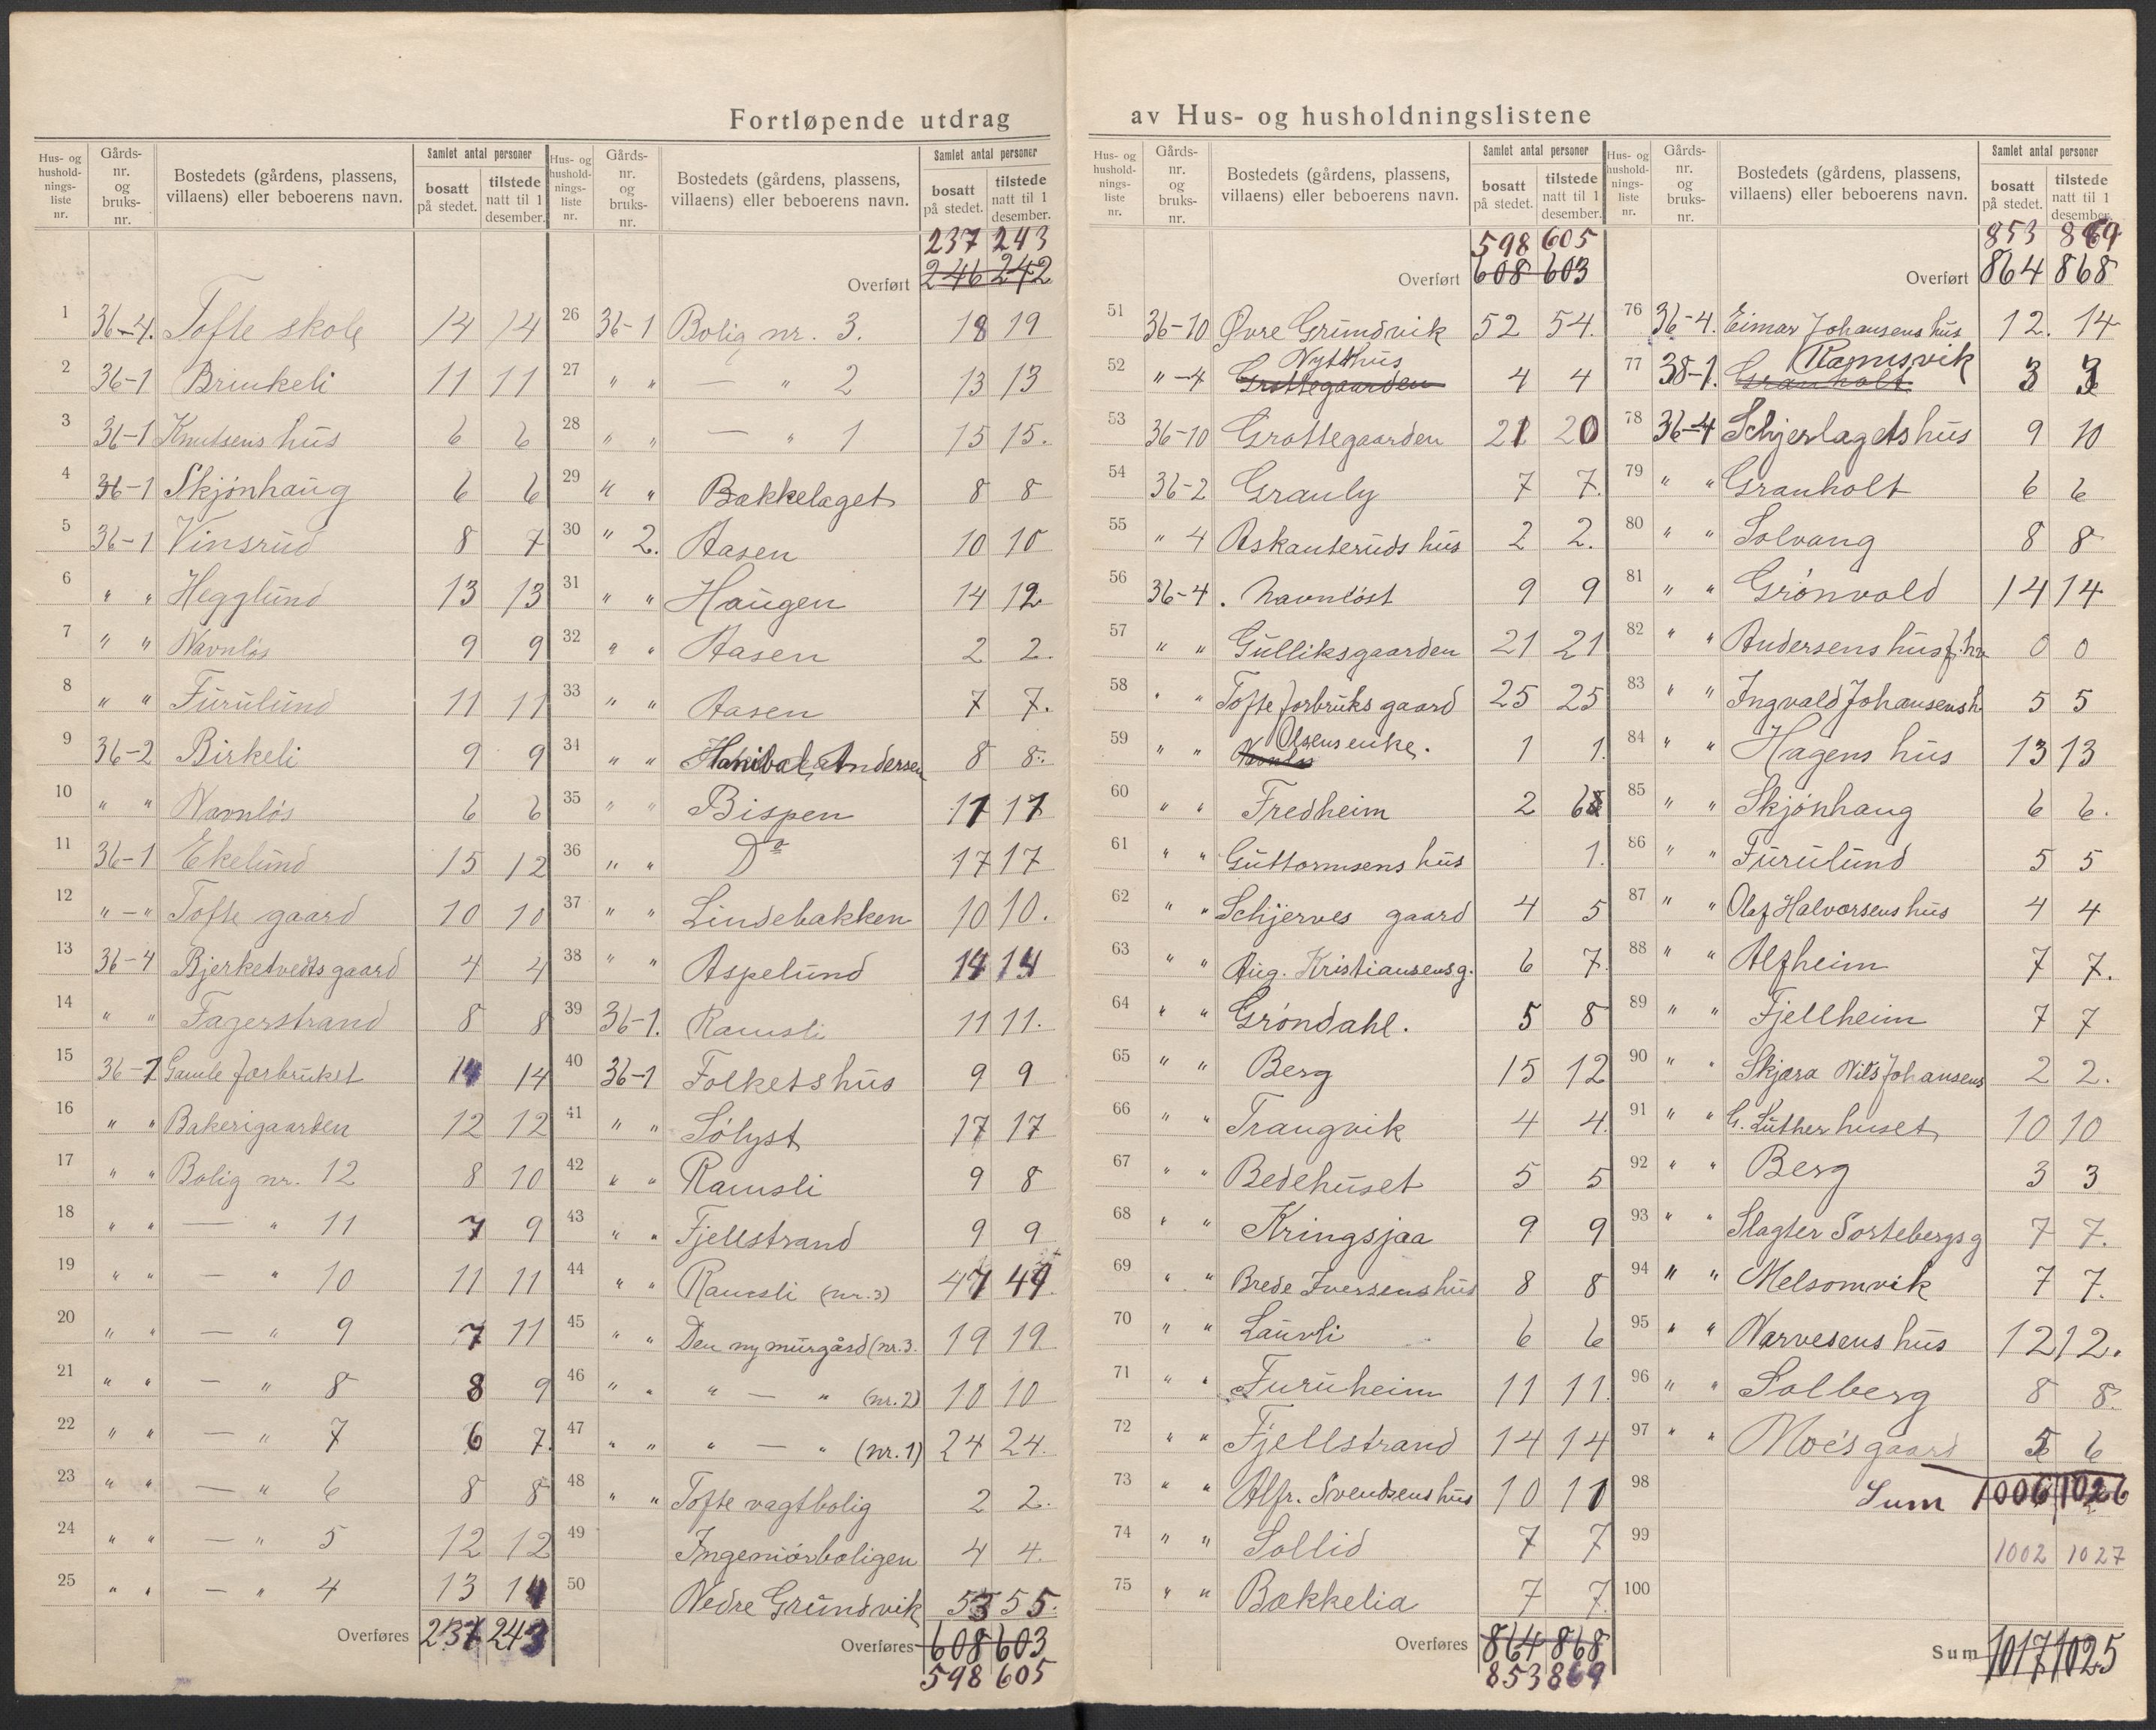 Fortløpende utdrag av Hus- og husholdningslistene
Hus- og husholdnings-liste nr. | Gårds-nr. og bruks-nr. | Bostedets (gårdens, plassens, villaens) eller beboerens navn. | Samlet antal personer | bosatt på stedet. | tilstede natt til 1 desember.
1 36-4. Tofte skole 14 14
2 36-1 Brinkeli 11 11
3 36-1 Knutsens hus 6 6
4 36-1 Skjønhaug 6 6
5 36-1 Vinsrud 8 7
6 " " Hegglund 13 13
7 " " Navnløs 9 9
8 " " Furulund 11 11
9 36-2 Birkeli 9 9
10 " " Navnløs 6 6
11 36-1 Ekelund 15 12
12 " - " Tofte gaard 10 10
13 36-4 Bjerketvedts gaard 4 4
14 " " Fagerstrand 8 8
15 36-1 Gamle forbruket 14 14
16 " " Bakerigaarden 12 12
17 " " Bolig nr. 12 8 10
18 " " — " 11 7 9
19 " " — " 10 11 11
20 " " — " 9 7 11
21 " " — " 8 8 9
22 " " — " 7 6 7.
23 " " — " 6 8 8
24 " " — " 5 12 12
25 " " — " 4 13 14
Overføres 237 243
Hus- og husholdnings-liste nr. | Gårds-nr. og bruks-nr. | Bostedets (gårdens, plassens, villaens) eller beboerens navn. | Samlet antal personer | bosatt på stedet. | tilstede natt til 1 desember.
237 243
Overført 246 242
26 36-1 Bolig nr. 3. 18 19
27 " " — " 2 13 13
28 " " — " 1 15 15.
29 " " Bakkelaget 8 8
30 " 2. Aasen 10 10
31 " " Haugen 14 12
32 " " Aasen 2 2.
33 " " Aasen 7 7.
34 " " Hanibal Andersen 8 8.
35 " " Bispen 17 17
36 " " Do 17 17
37 " " Lindebakken 10 10.
38 " " Aspelund 14 14
39 36-1. Ramsli 11 11.
40 36-1 Folkets hus 9 9
41 " " Sølyst 17 17
42 " " Ramsli 9 8
43 " " Fjellstrand 9 9
44 " " Ramsli (nr. 3) 47 49.
45 " " Den ny murgård (nr. 3. 19 19
46 " " " — " (nr. 2) 10 10
47 " " " — " (nr. 1) 24 24.
48 " " Tofte vagtbolig 2 2.
49 Ingeniørboligen 4 4.
50 Nedre Grundvik 53 55.
Overføres 608 603
598 605
Hus- og husholdnings-liste nr. | Gårds-nr. og bruks-nr. | Bostedets (gårdens, plassens, villaens) eller beboerens navn. | Samlet antal personer | bosatt på stedet. | tilstede natt til 1 desember.
598 605
Overført 608 603
51 36-10 Øvre Grundvik 52 54.
52 " -4 Grottegaarden Nytt hus 4 4
53 36-10 Grottegaarden 21 20
54 36-2 Granly 7 7.
55 " 4 Askauteruds hus 2 2.
56 36-4 . Navnløst 9 9
57 " " Gulliksgaarden 21 21
58 " " Tofte forbruks gaard 25 25
59 " " Navnløs Olsens enke. 1 1.
60 " " Fredheim 2
61 " " Guttormsens hus 1.
62 " " Schjerves gaard 4 5
63 " " Aug. Kristiansens g. 6 7.
64 " " Grøndahl. 5 8
65 " " Berg 15 12
66 " " Trangvik 4 4.
67 " " Bedehuset 5 5
68 " " Kringsjaa 9 9
69 " " Brede Iversens hus 8 8
70 " " Laurli 6 6
71 " " Furuheim 11 11.
72 " " Fjellstrand 14 14
73 " " Alfr. Svendsens hus 10 11
74 " " Sollid 7 7
75 " " Bækkelia 7 7.
Overføres 864 868
853 869
Hus- og husholdnings-liste nr. | Gårds-nr. og bruks-nr. | Bostedets (gårdens, plassens, villaens) eller beboerens navn. | Samlet antal personer | bosatt på stedet. | tilstede natt til 1 desember.
853 869
Overført 864 868
76 36-4. Eimar Johansens hus 12. 14
77 38-1. Granholt Ramsvik 3 3
78 36-4 Schjerlagets hus 9 10
79 " " Granholt 6 6
80 " " Solvang 8 8
81 " " Grønvold 14 14
82 " " Andersens hus 0 0
83 " " Ingvald Johansens h 5 5
84 " " Hagens hus 13 13
85 " " Skjønhaug 6 6.
86 " " Furulund 5 5
87 " " Olaf Halvorsens hus 4 4
88 " " Alfheim 7 7.
89 " " Fjellheim 7 7
90 " " Skjæra Nils Johansens 2 2.
91 " " G. Luther huset 10 10
92 " " Berg 3 3
93 " " Slagter Sortebergs g 7 7.
94 " " Melsomvik 7 7.
95 " " Narvesens hus 12 12.
96 " " Solberg 8 8.
97 " " Moe's gaard 5 6
98 Sum 1006 1026
99 1002 1027
100
Sum 1017 1025